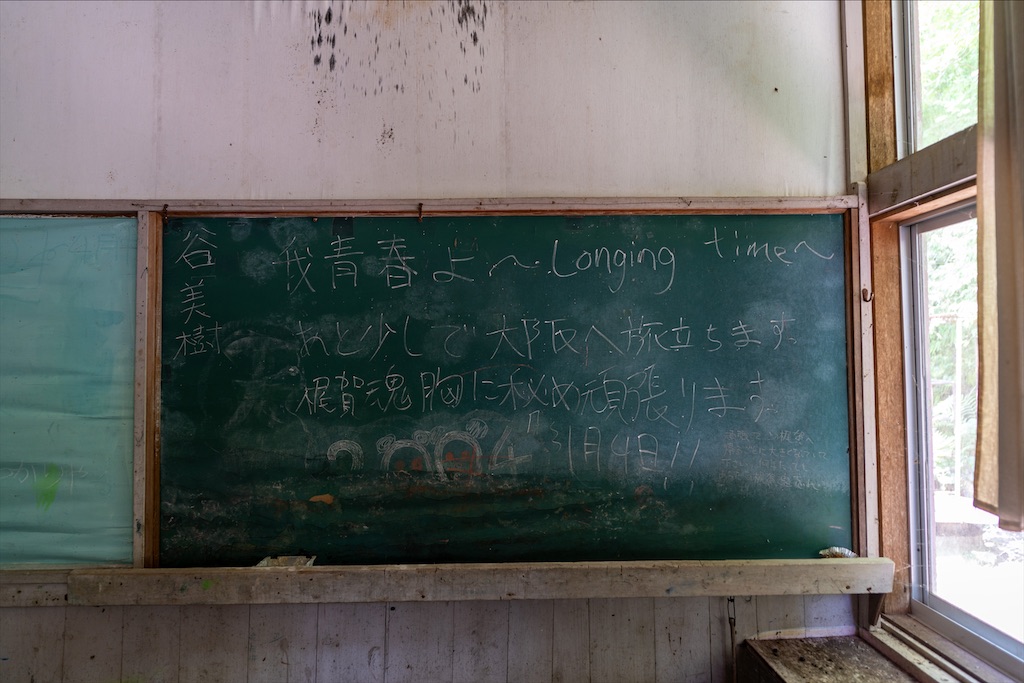 谷美樹
我青春よ〜Longing time〜
あと少しで大阪へ旅立ちます
梶賀魂胸に秘め頑張ります
3月4日!!